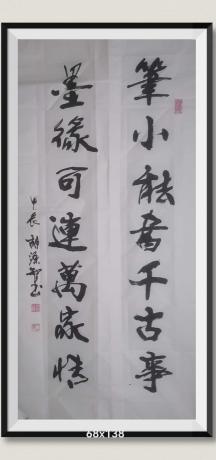 筆小能書千古事
墨緣可連萬家情
甲辰
68x138